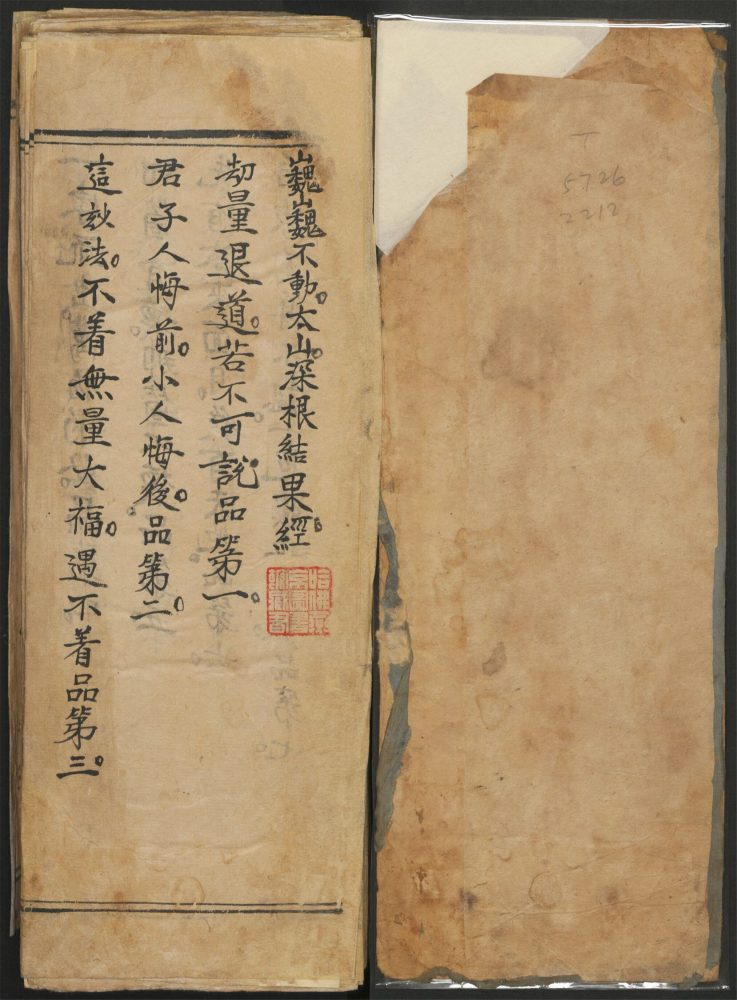 T
5726
2212
巍巍不動。太山。深根結果經。
哈佛燕京圖書館藏書
劫量退道。苦不可說。品第一。
君子人悔前。小人悔後。品第二。
這玅法。不着無量大福。遇不着品第三。